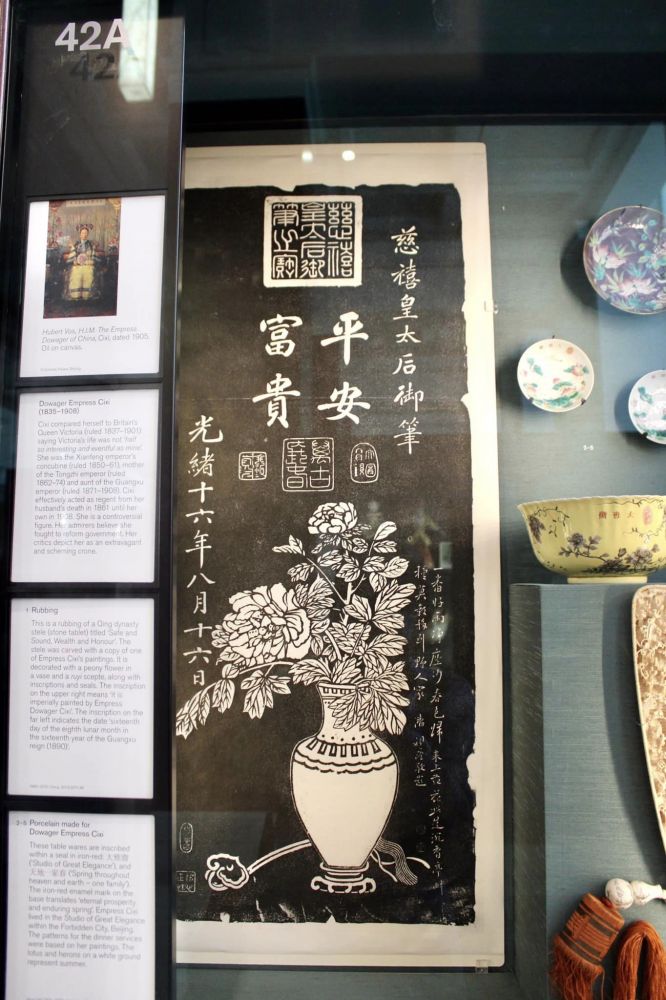 42A
Hubert Vos, H.I.M. The Empress
Dowager of China, Cixi, dated 1905.
Oil on canvas.
Dowager Empress Cixi
(1835–1908)
Cixi compared herself to Britain's
Queen Victoria (ruled 1837–1901)
saying Victoria's life was not 'half
so interesting and eventful as mine'.
She was the Xianfeng emperor's
concubine (ruled 1850–61), mother
of the Tongzhi emperor (ruled
1862–74) and aunt of the Guangxu
emperor (ruled 1871–1908). Cixi
effectively acted as regent from her
husband's death in 1861 until her
own in 1908. She is a controversial
figure. Her admirers believe she
fought to reform government. Her
critics depict her as an extravagant
and scheming crone.
1 Rubbing
This is a rubbing of a Qing dynasty
stele (stone tablet) titled 'Safe and
Sound, Wealth and Honour'. The
stele was carved with a copy of one
of Empress Cixi's paintings. It is
decorated with a peony flower in
a vase and a ruyi scepter, along with
inscriptions and seals. The inscription
on the upper right means 'it is
imperially painted by Empress
Dowager Cixi'. The inscription on the
far left indicates the date 'sixteenth
day of the eighth lunar month in
the sixteenth year of the Guangxu
reign (1890)'.
2-5 Porcelain made for
Dowager Empress Cixi
These table wares are inscribed
within a seal in iron-red: 大雅齋
('Studio of Great Elegance'), and
天地一家春 ('Spring throughout
heaven and earth – one family').
The iron-red enamel mark on the
base translates 'eternal prosperity
and enduring spring'. Empress Cixi
lived in the Studio of Great Elegance
within the Forbidden City, Beijing.
The patterns for the dinner services
were based on her paintings. The
lotus and herons on a white ground
represent summer.
慈禧皇太后御筆
慈禧
皇太后御
筆之寶
平安
富貴
光緒十六年八月十六日
2-5
大雅齋